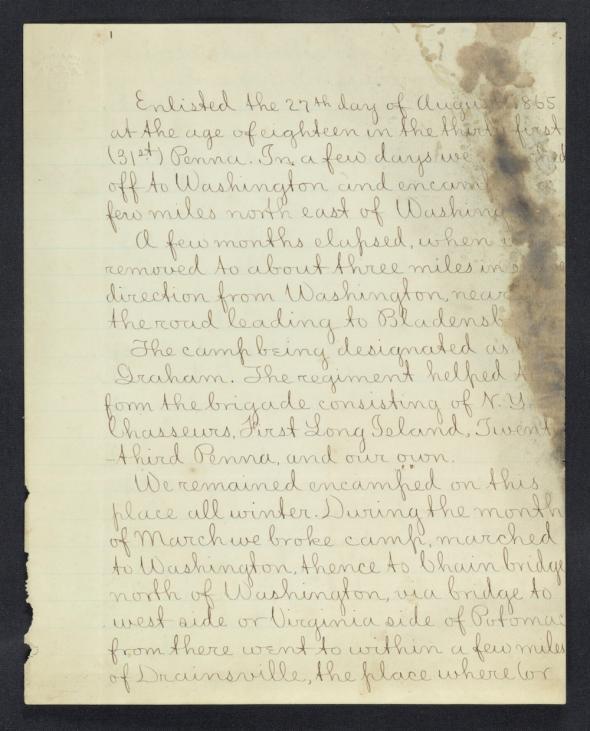 1
Enlisted the 27th day of 1865
at the age of eighteen in the first
(31st) Penna. In a few days we
off to Washington and
few miles north east of
A few months elapsed, when
removed to about three miles in
direction from Washington, near
the road leading to
The camp being designated as
Graham. The regiment helped
form the brigade consisting of N.Y.
Chasseurs, First Long Island, Twenty
-third Penna, and our own.
We remained encamped on this
place all winter. During the month
of March we broke camp, marched
to Washington, thence to Chain bridge
north of Washington, via bridge to
west side or Virginia side of Potomac
from there went to within a few miles
of Drainsville, the place where (or